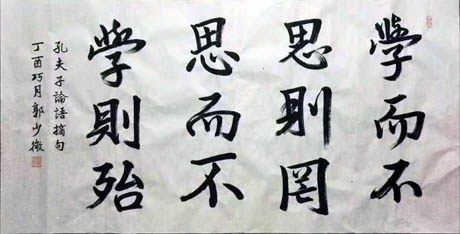 學而不
思則罔
思而不
學則殆
孔夫子論語摘句
丁酉巧月郭少微